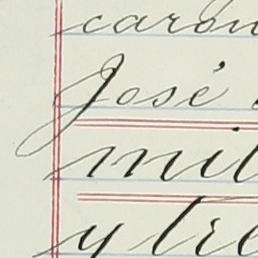 caron
José
mil
y tre